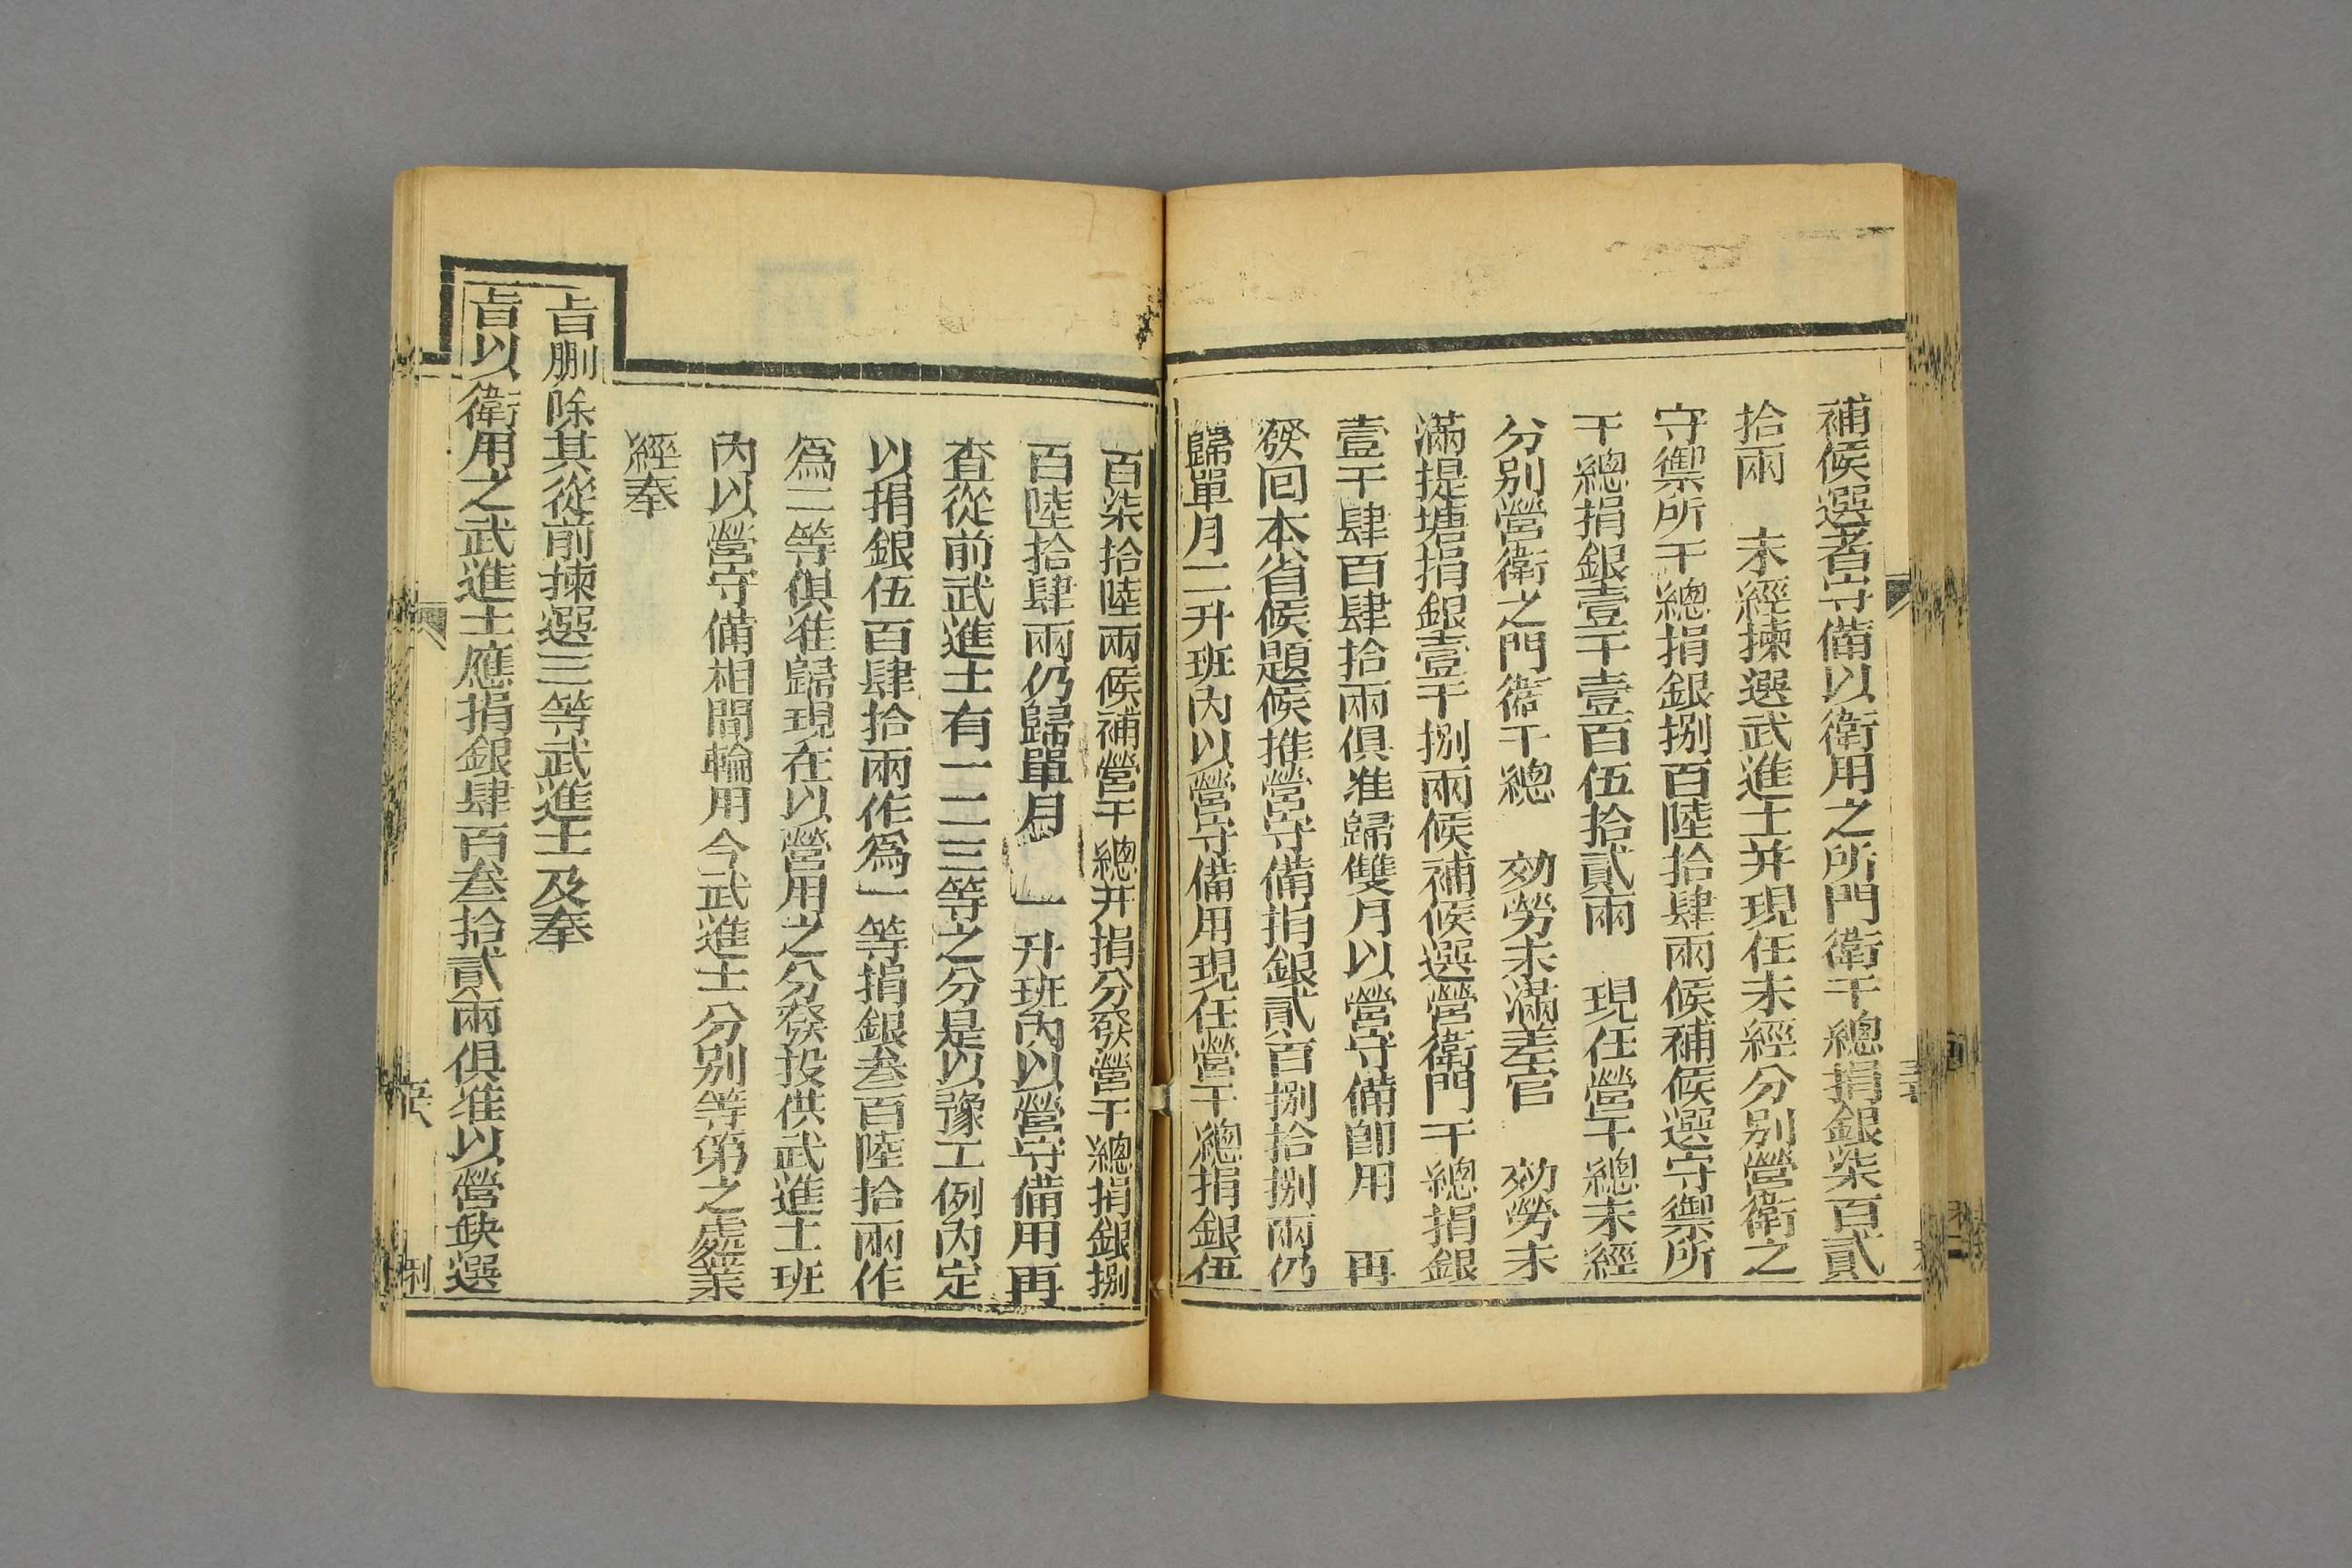 補候選者守備以衞用之所門衞千總捐銀柒百貳
拾兩　未經揀選武進士并現任未經分别營衞之
守禦所千總捐銀捌百陸拾肆兩候補候選守禦所
千總捐銀壹千壹百伍拾貳兩　現任營千總未經
分别營衞之門衞千總　効勞未滿差官　効勞未
滿提塘捐銀壹千捌兩候補候選營衞門千總捐銀
壹千肆百肆拾兩俱准歸雙月以營守備卽用　再
發回本省候題候推營守備捐銀貳百捌拾捌兩仍
歸單月二升班內以營守備用現任營千總捐銀伍
百柒拾陸兩候補營千總并捐分發營千總捐銀捌
百陸拾肆兩仍歸單月　一升班內以營守備用再
查從前武進士有一二三等之分是以豫工例內定
以捐銀伍百肆拾兩作為一等捐銀叁百陸拾兩作
為二等俱准歸現在以營用之分發投供武進士班
內以營守備相間輪用今武進士分别等第之處業
經奉
旨刪除其從前揀選三等武進士及奉
旨以衞用之武進士應捐銀肆百叁拾貳兩俱准以營缺選